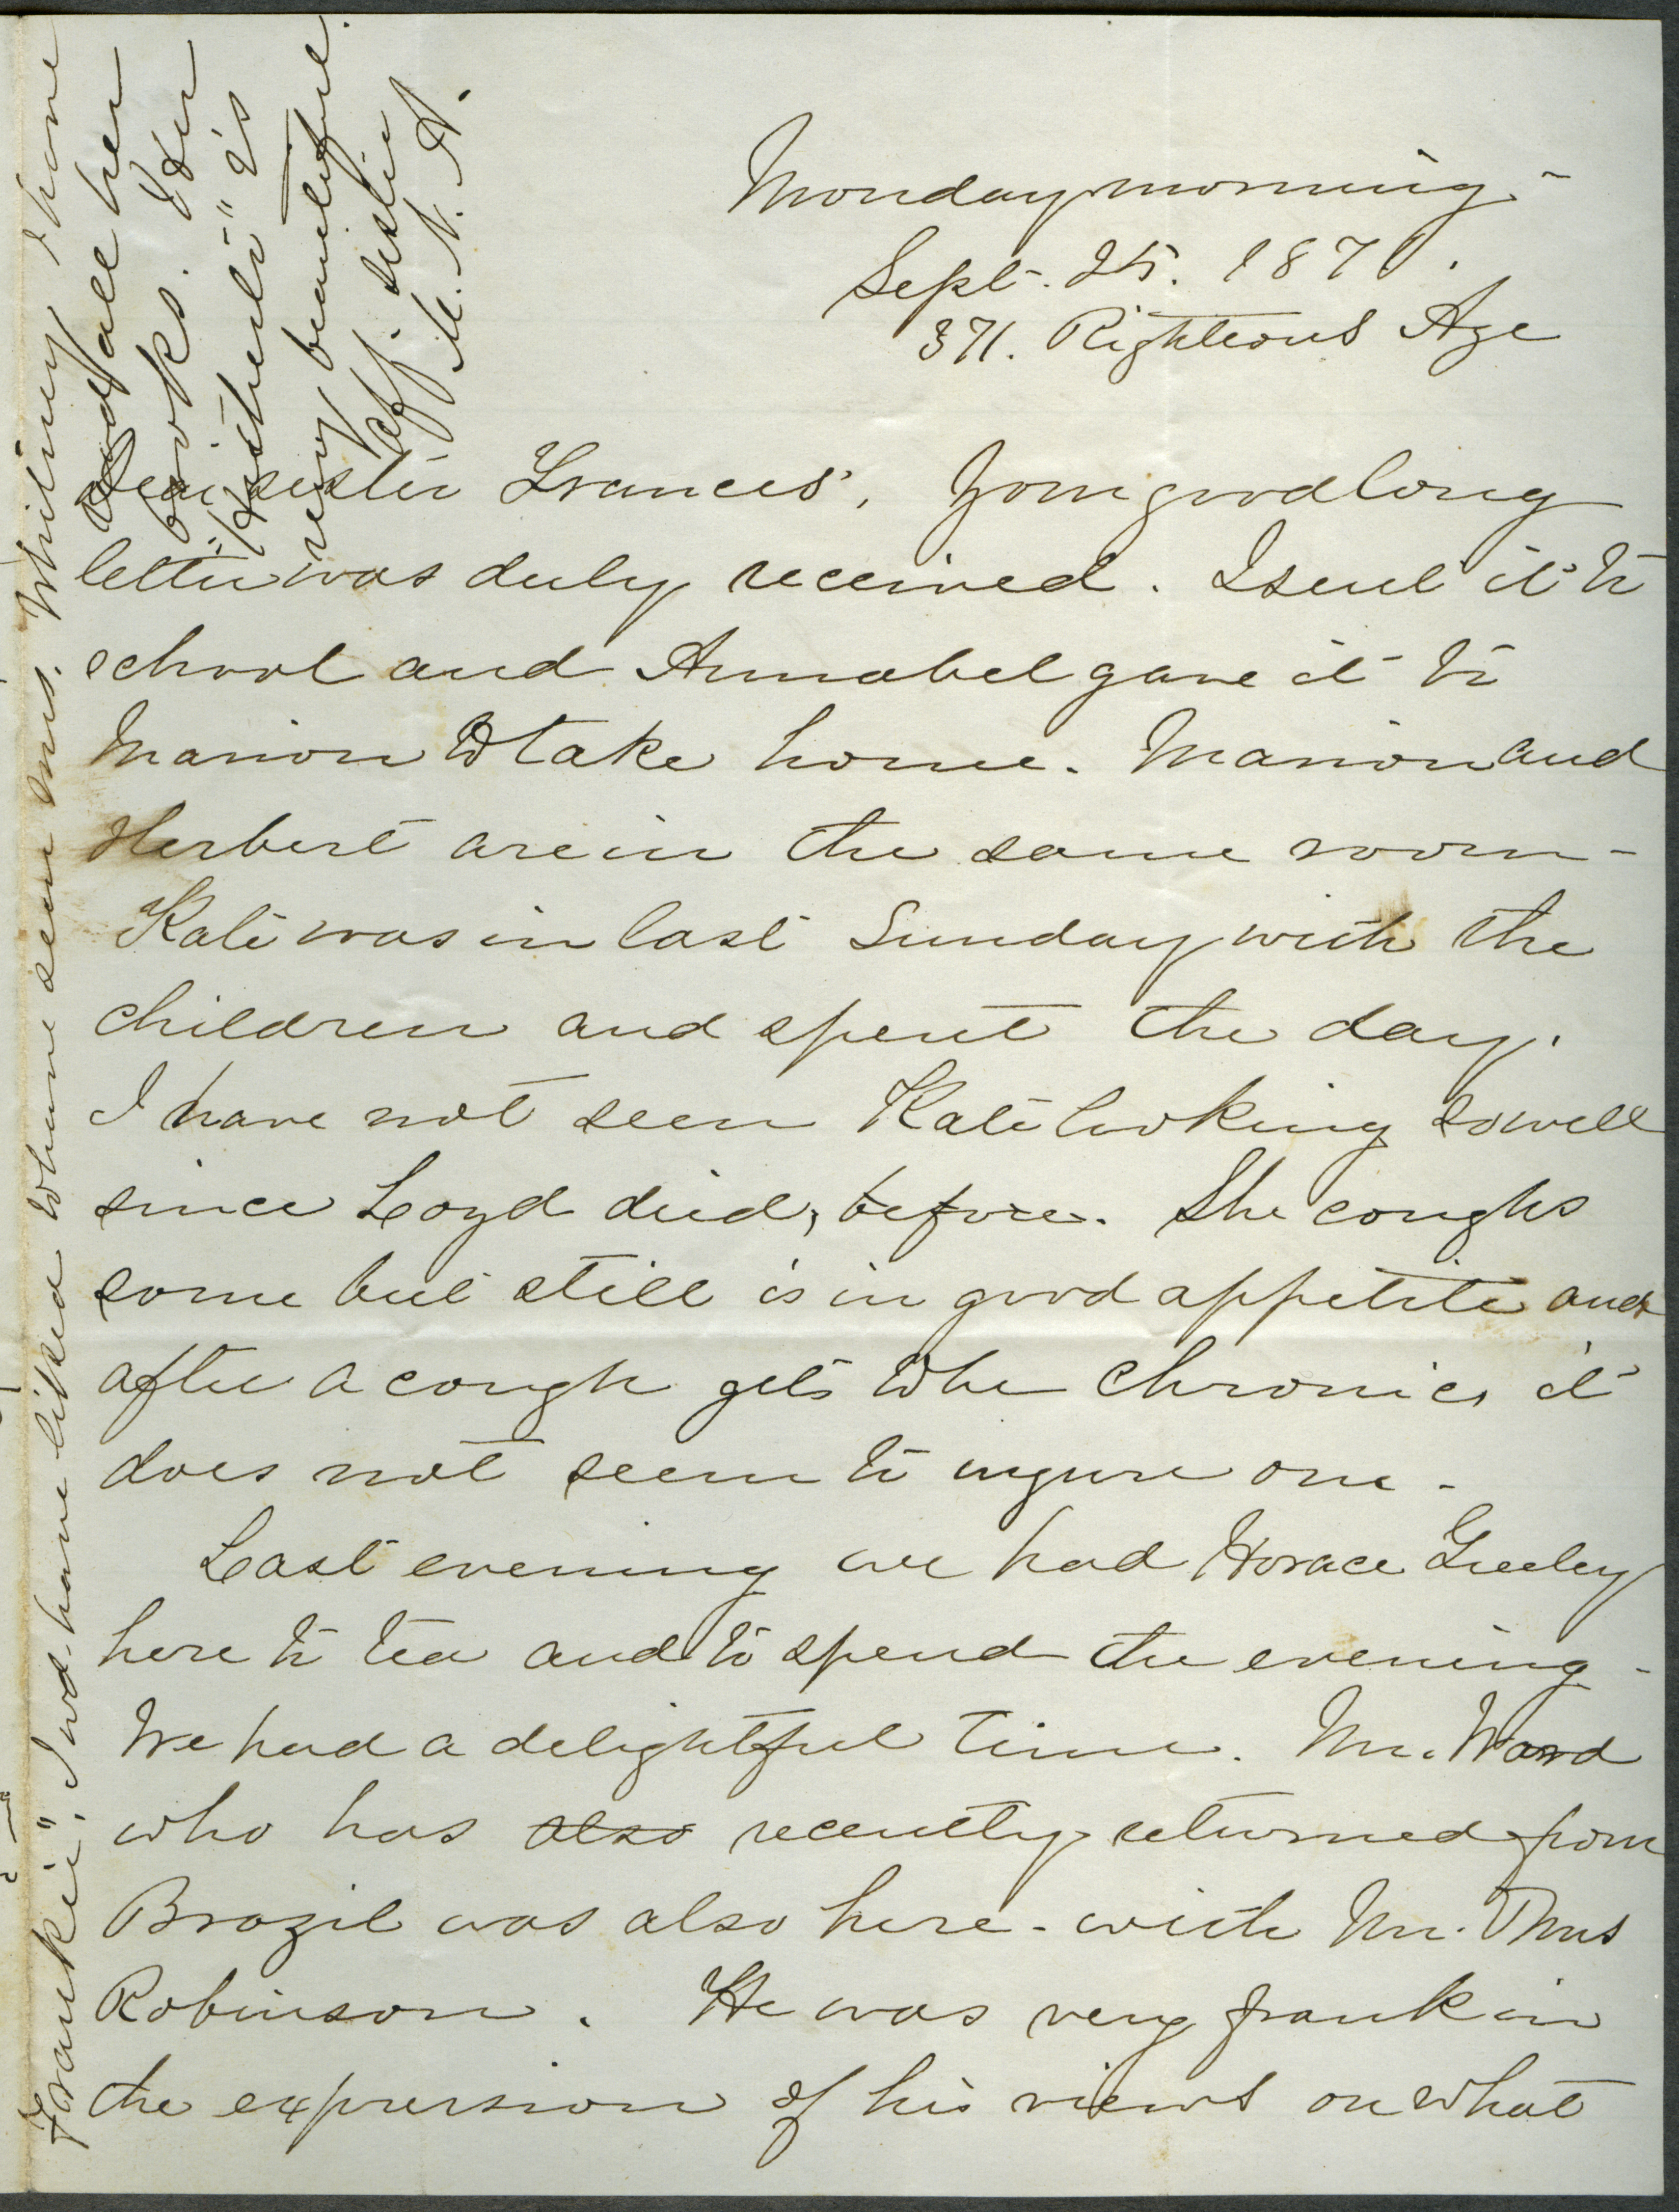 Monday morning -
Sept. 25. 1871.
371. Righteous Age
Dear sister Frances, Your good long
letter was duly received. I sent it to
school and Annabel gave it to
Marion to take home. Marion and
Herbert are in the same room -
Kate was in last Sunday with the
children and spent the day.
I have not seen Kate looking so well
since Loyd died, before. She coughs
some but still is in good appetite and
after a cough gets to be chronic, it
does not seem to injure one -
Last evening we had Horace Greeley
here to tea and to spend the evening -
We had a delightful time. Mr. Ward
who has also recently returned from
Brazil was also here - with Mr. Thos
Robinson. He was very frank in
the expression of his views on what
Frankie". I wd. have liked to have seen Mrs. Whitney & have
read all her
books. Her
very beautiful.
aff. sister
M. N. A.